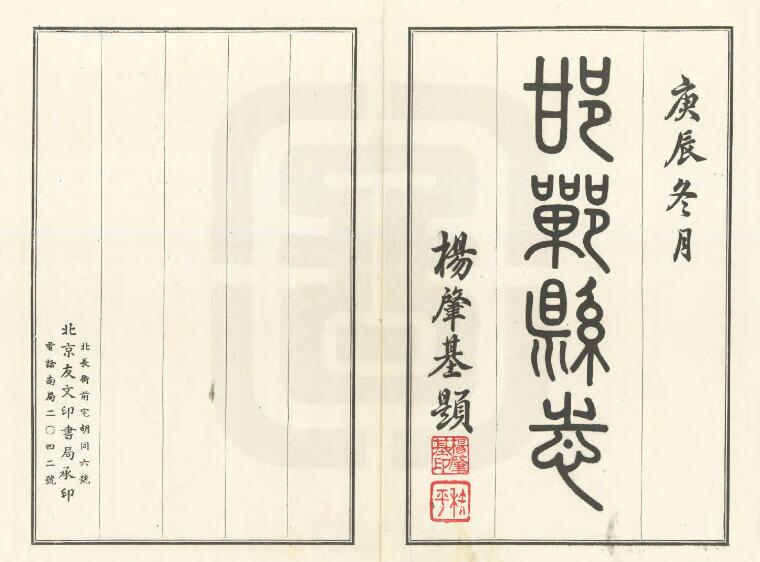 庚辰冬月
邯鄲縣志
楊肇基題
楊肇基印
北長街前宅胡同六號
北京友文印書局承印
電話南局二〇四二號